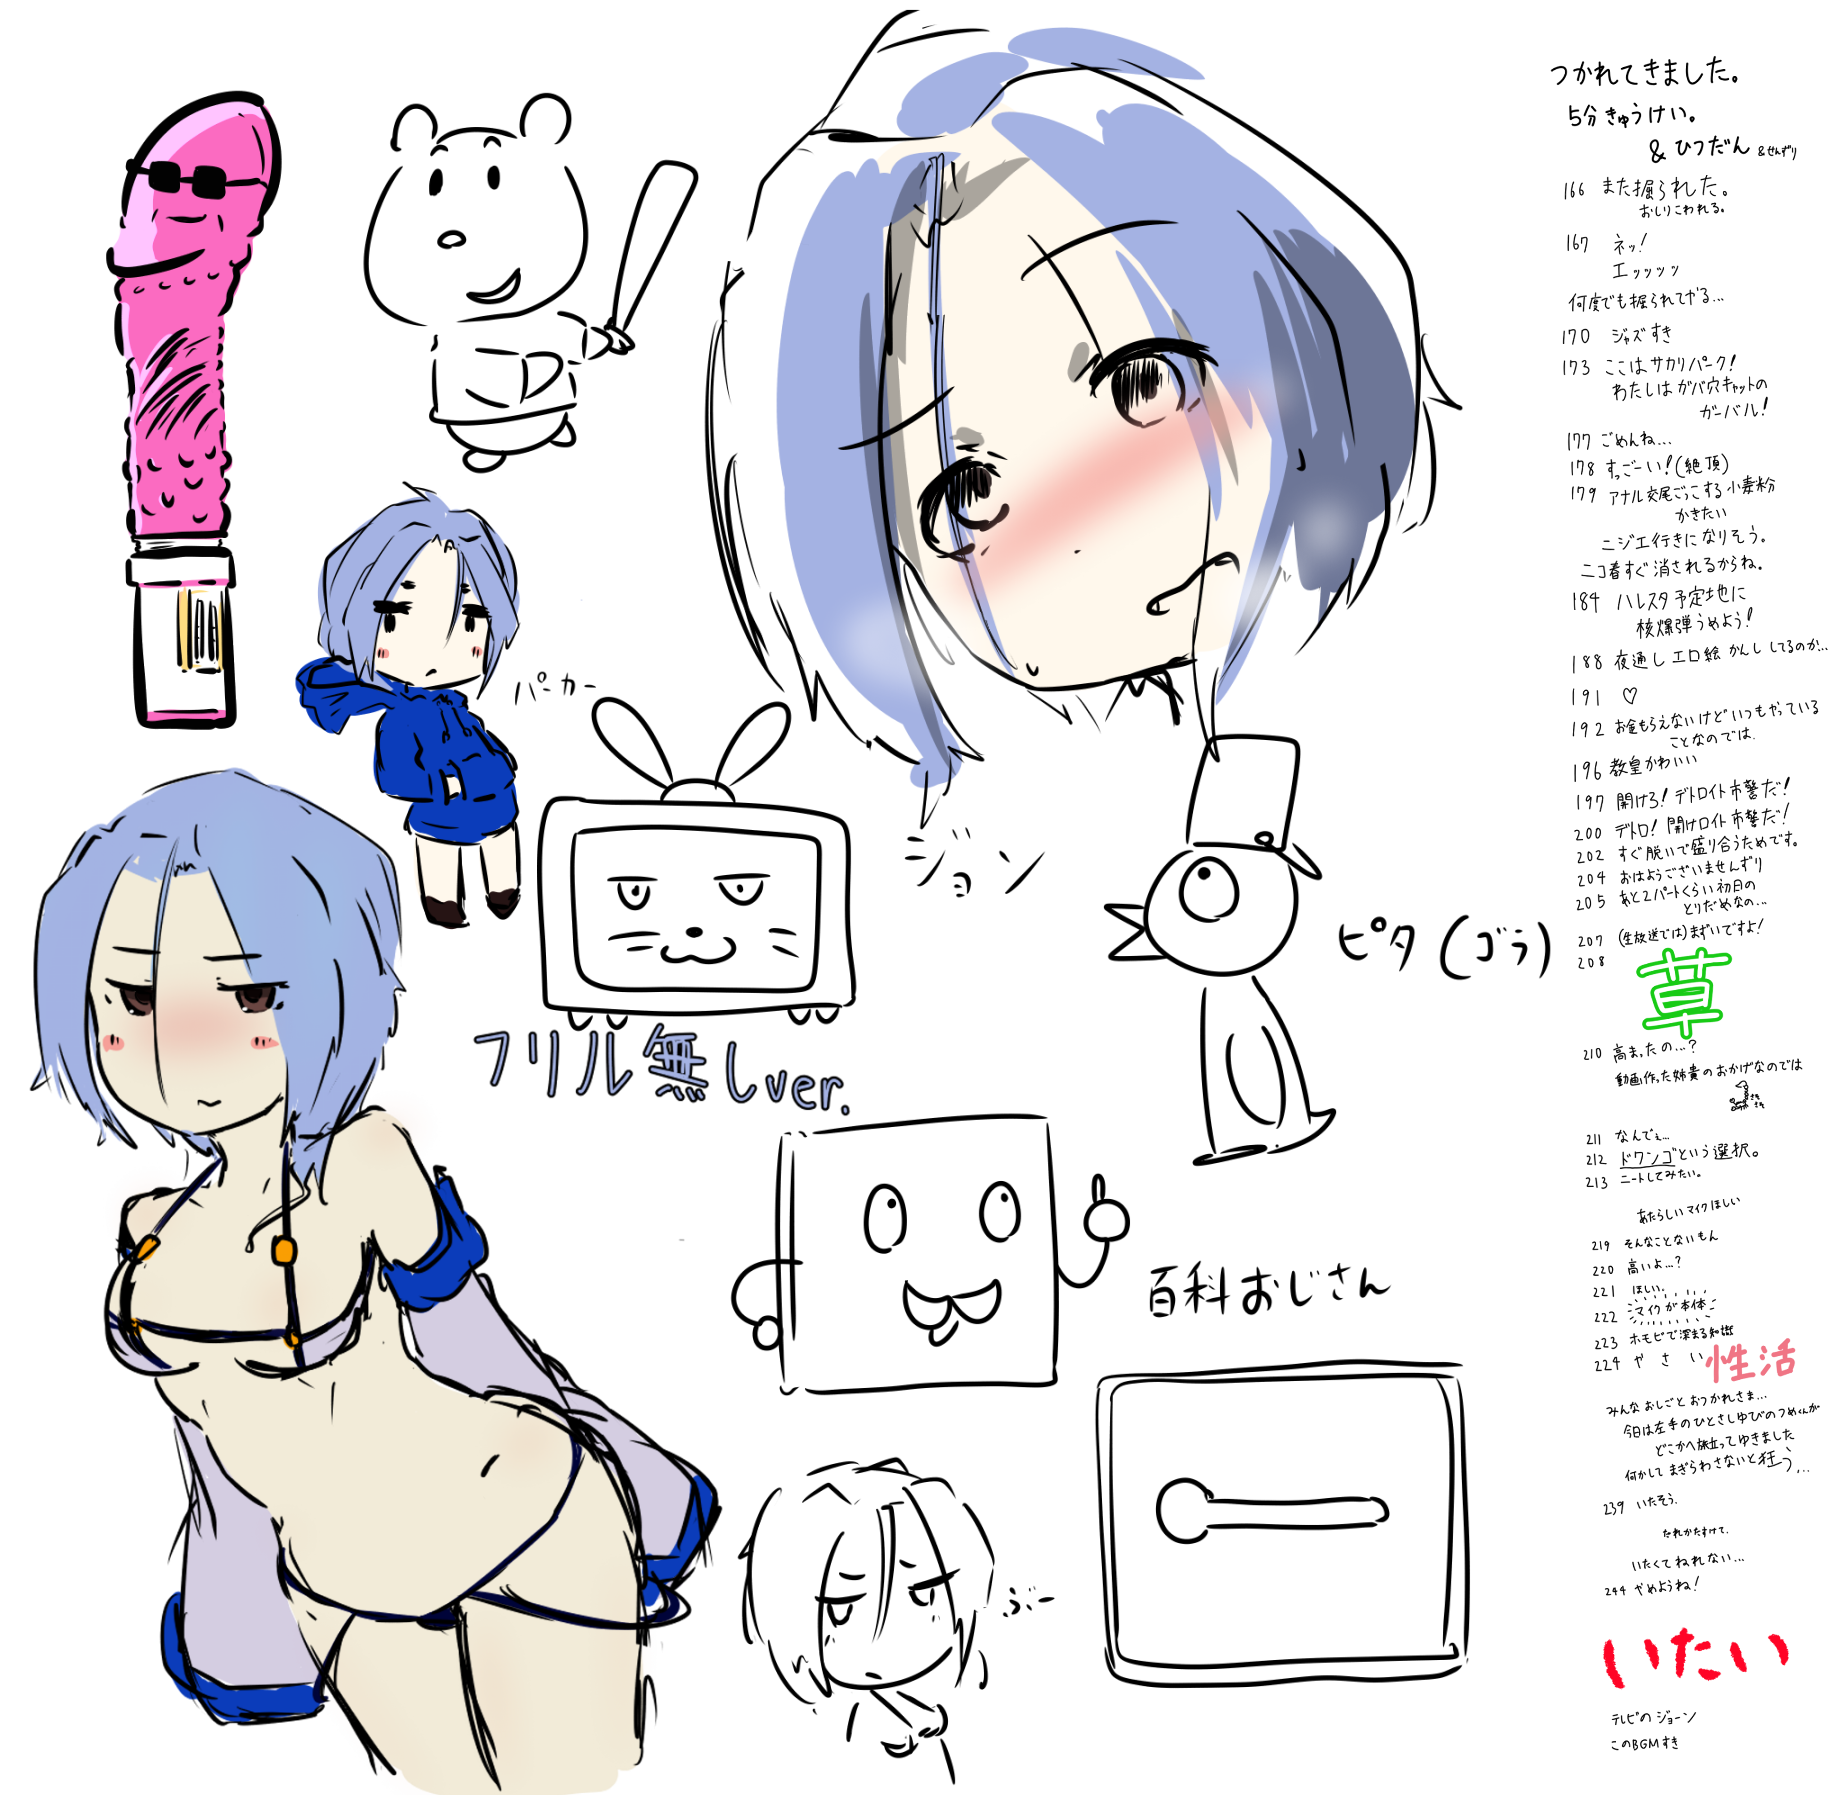 つかれてきました。
5分きゅうけい。
&ひつだん &せんずり
166 また掘られた。
おしりこわれる。
167 ネッ!
エッッッッ
何度でも掘られてがる...
170 ジャズすき
173 ここはサカリパーク!
わたしはガバ穴キャットの
ガーバル!
177 ごめんね...
178 すっごーい!(絶頂)
179 アナル交尾ごっこする小麦粉
かきたい
ニジエ行きになりそう。
ニコ春すぐ消されるからね。
184 ハレスタ予定地に
核爆弾うめよう!
188 夜通しエロ絵かんししてるのか...
191 ♡
192 お金もらえないけどいつもやっている
ことなのでは.
196 教皇かわいい
197 開けろ!デトロイト市警だ!
200 デトロ!開けロイト市警だ!
202 すぐ脱いで盛り合うためです。
204 おはようございませんずり
205 あと2パートくらい初日の
とりだめなの...
207 (生放送では)まずいですよ!
208
草
210 高まったの...?
動画作った姉貴のおかげなのでは
211 なんでぇ...
212 ドワンゴという選択。
213 ニートしてみたい。
あたらしいマイクほしい
219 そんなことないもん
220 高いよ...?
221 ほしい.
222 マイクが本体
223 ホモビで深まる知識
224 やさい性活
みんなおしごとおつかれさま...
今日は左手のひとさしゆびのつめくんが
どこかへ旅立ってゆきました
何かしてまぎらわさないと狂う...
239 いたそう.
たれかたすけて.
いたくてねれない...
244 やめようね!
いたい
テレビのジョーン
このBGMすき
パーカー
ジョン
ピタ(ゴラ)
フリル無しver.
百科おじさん
ぶー